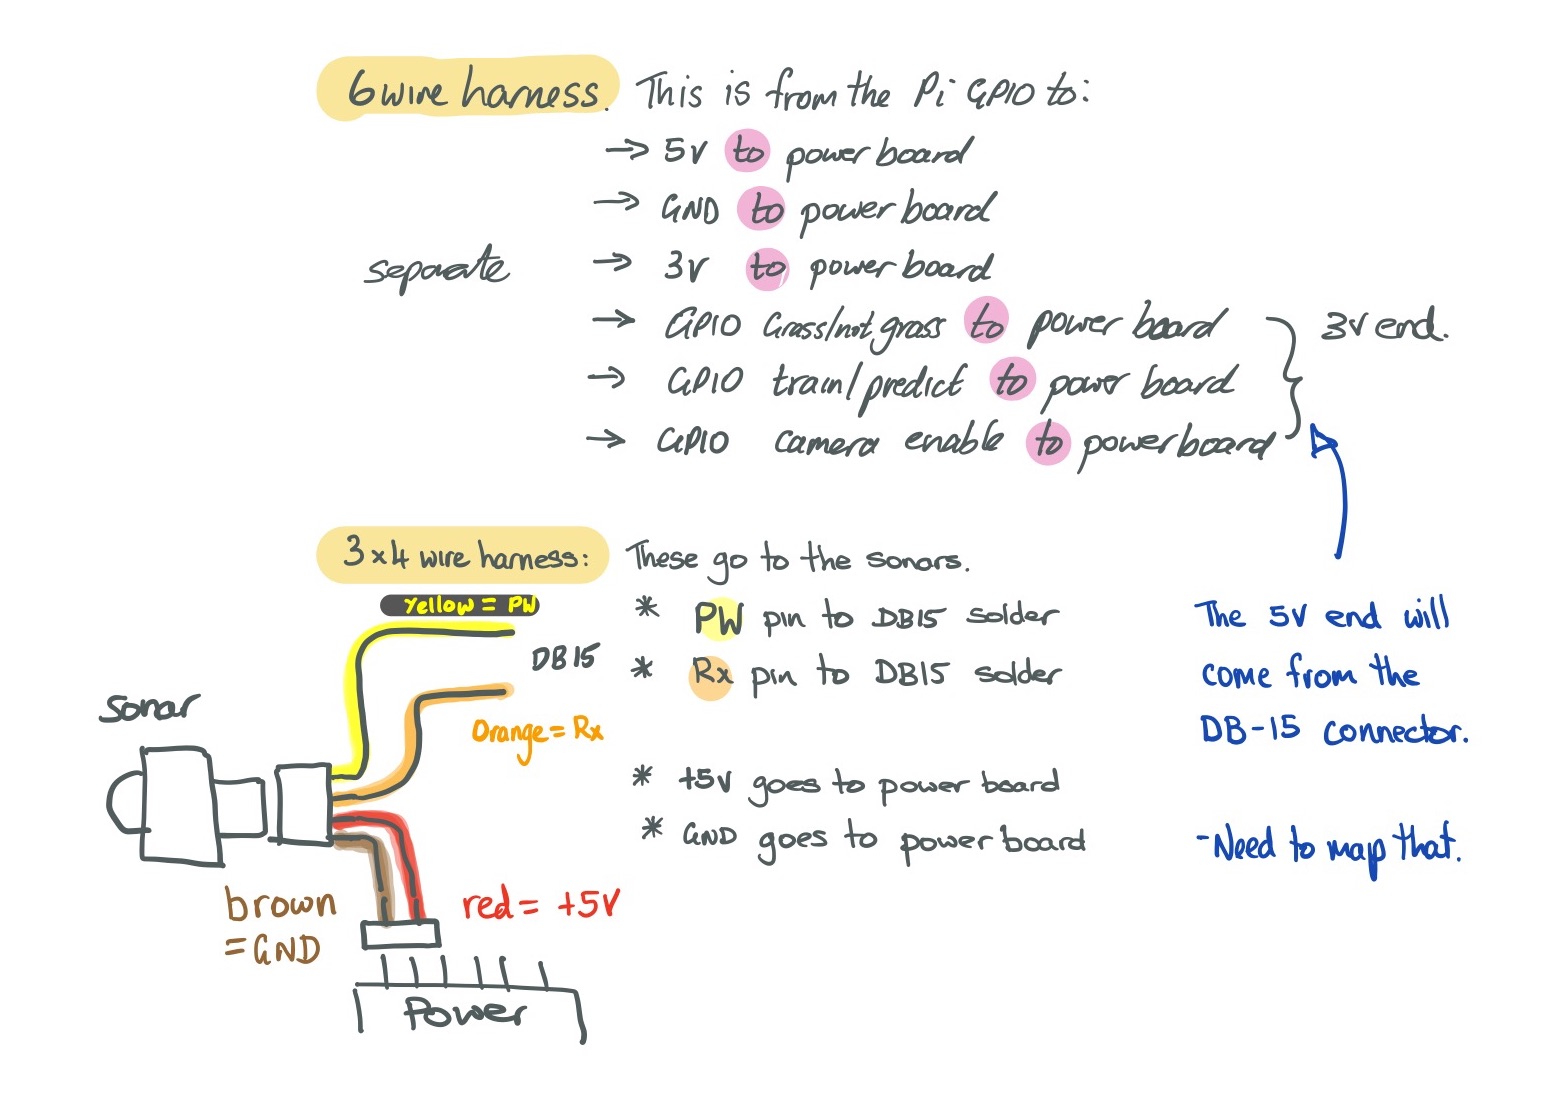 6 wire harness. This is from the Pi GPIO to:
→ 5V to power board
→ GND to power board
separate → 3V to power board
→ GPIO Grass/not grass to power board } 3V end.
→ GPIO train/predict to power board
→ GPIO camera enable to power board
3x4 wire harness: These go to the sonars.
Yellow = PW
* PW pin to DB15 solder
DB15
* Rx pin to DB15 solder
Orange = Rx
* +5V goes to power board
* GND goes to power board
The 5V end will
come from the
DB-15 connector.
- Need to map that.
Sonar
brown
= GND
red = +5V
Power